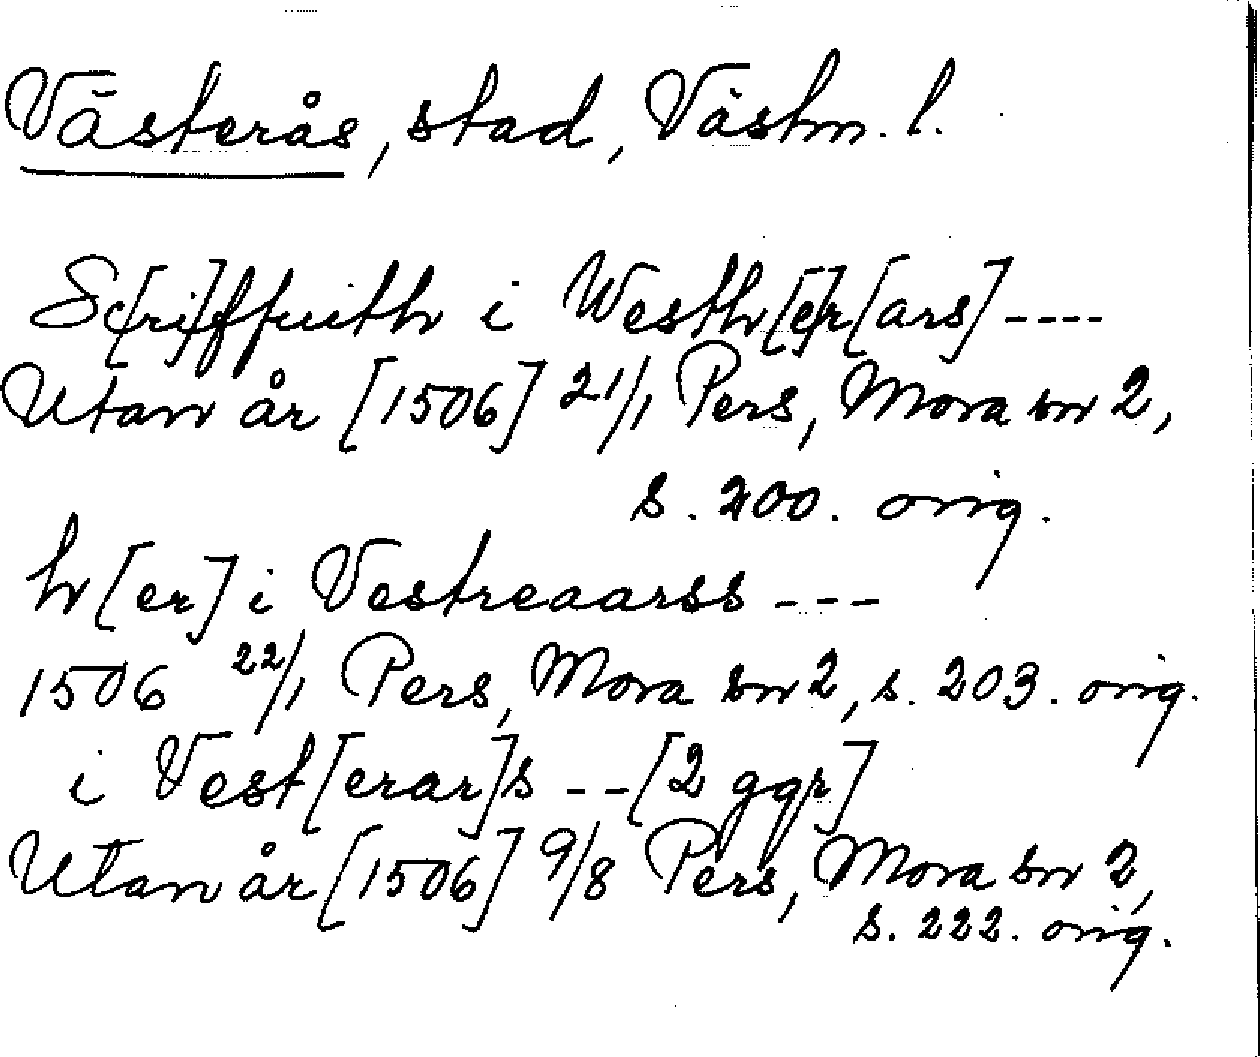 Västerås, stad, Västm. l.
Sc[ri]ffuith i Westh[e]r[ars] ----
Utan år [1506] 21/1 Pers, Mora br 2,
s. 200. orig.
hr [er] i Vestreaarss ---
1506 22/1 Pers, Mora br 2, s. 203. orig.
i Vest[erar]s -- [2 ggr]
Utan år [1506] 9/8 Pers, Mora br 2,
s. 222. orig.